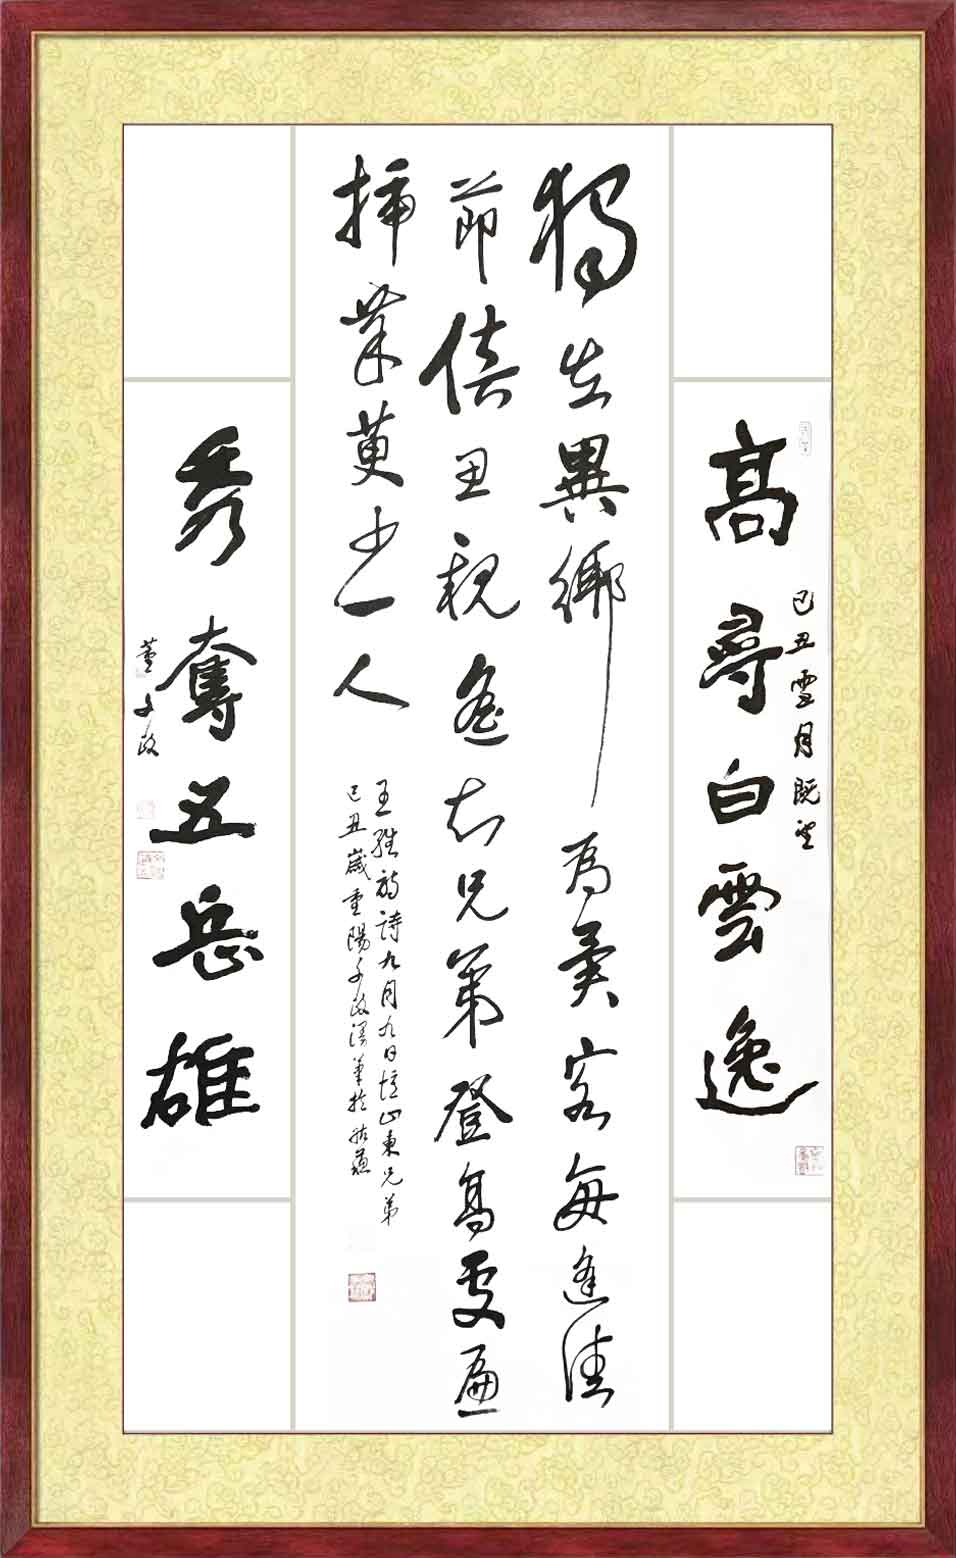 己丑雪月既望
高尋白雲逸
獨在異鄉為異客每逢佳
節倍思親遙知兄弟登高處遍
插茱萸少一人
王維詩九月九日憶山東兄弟
己丑歲重陽文政漫筆於姑蘇
秀奪五岳雄
董文政